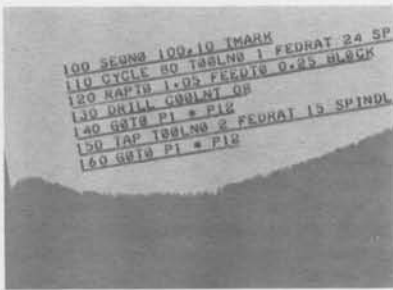 100 SEQNØ 100,10 TMARK
110 CYCLE 80 TØØLNØ 1 FEDRAT 24 SP
120 RAPTØ 1.05 FEEDTØ 0.25 BLØCK
130 DRILL CØØLNT
140 GØTØ P1 * P12
150 TAP TØØLNØ 2 FEDRAT 15 SPINDL
160 GØTØ P1 * P12